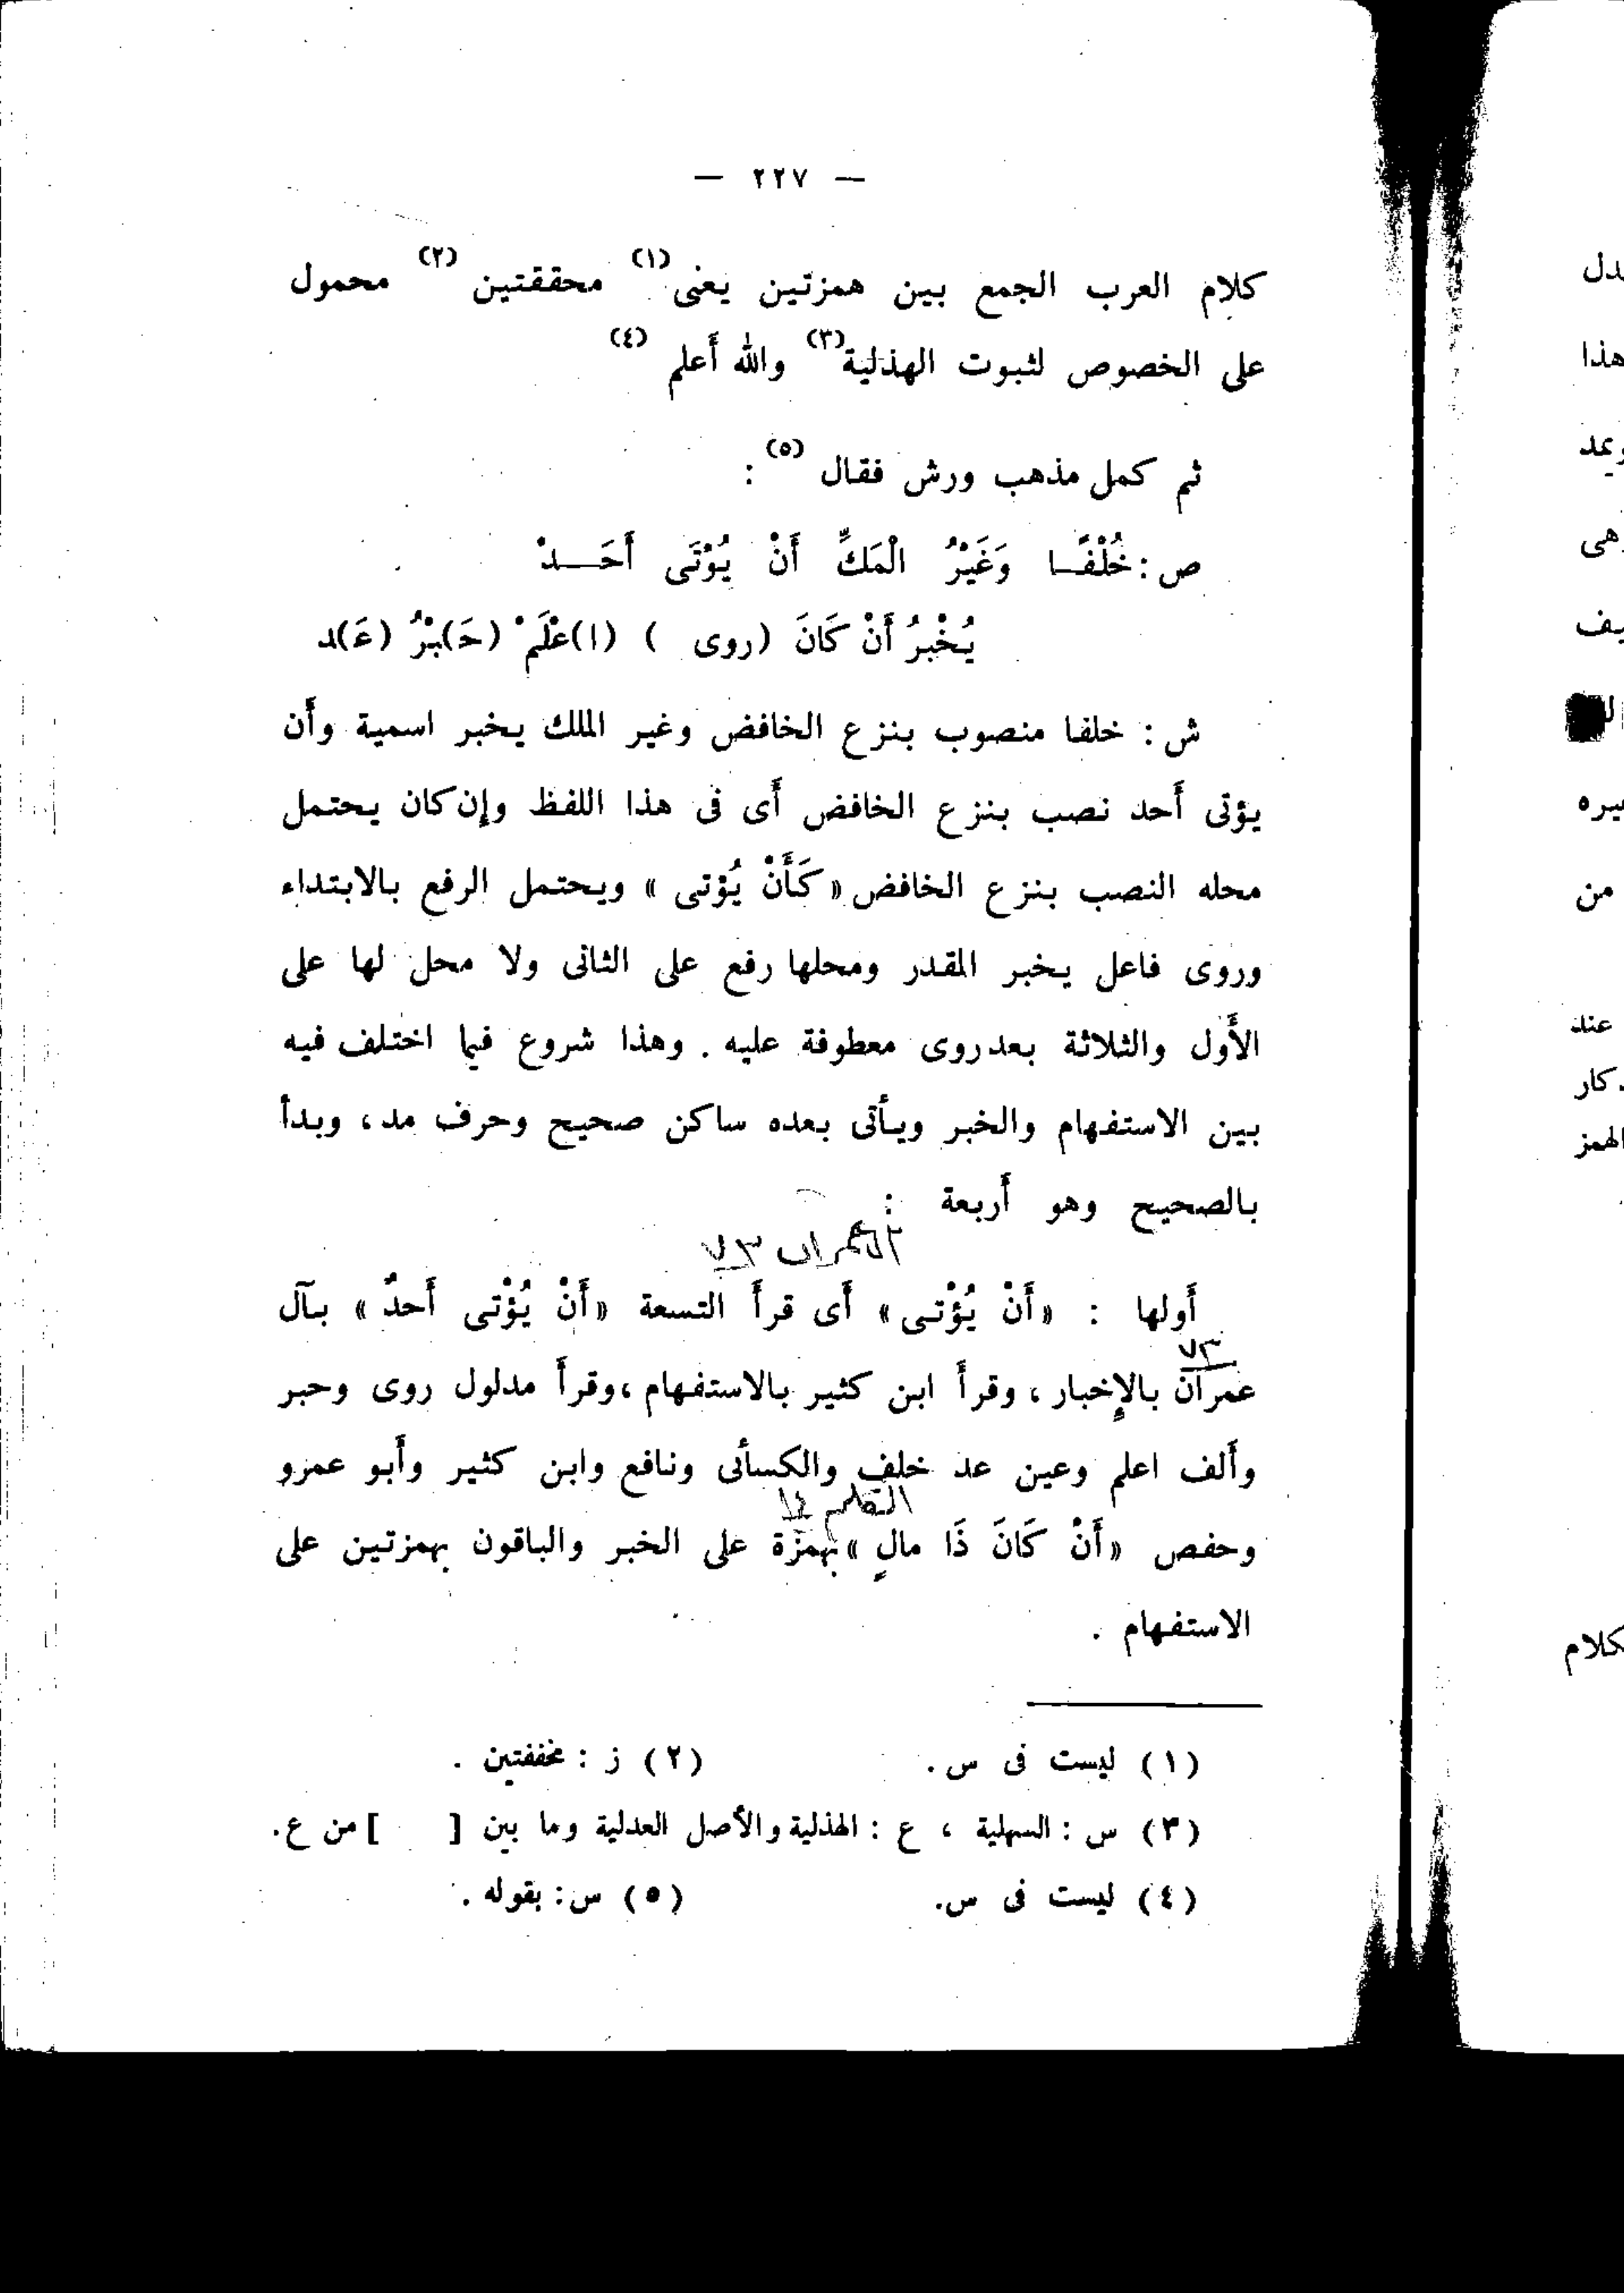 — ٢٢٧ —
كلام العرب الجمع بين همزتين يعنى (١) محققتين (٢) محمول
على الخصوص لثبوت الهذلية (٣) والله أعلم (٤)
ثم كمل مذهب ورش فقال (٥) :
ص : خُلْفًــا وَغَيْرُ الْمَكِّ أَنْ يُوْتَى أَحَــــدْ
يُخْبِرُ أَنْ كَانَ (روى ) (ا)عْلَمْ (حَ)بْرٌ (عَ)د
ش : خلفا منصوب بنزع الخافض وغير الملك يخبر اسمية وأن
يؤتى أحد نصب بنزع الخافض أى فى هذا اللفظ وإن كان يحتمل
محله النصب بنزع الخافض « كَأَنْ يُؤتى » ويحتمل الرفع بالابتداء
وروى فاعل يخبر المقدر ومحلها رفع على الثانى ولا محل لها على
الأول والثلاثة بعد روى معطوفة عليه . وهذا شروع فيما اختلف فيه
بين الاستفهام والخبر ويأتى بعده ساكن صحيح وحرف مد ، وبدأ
بالصحيح وهو أربعة :
آل عمران ٧٣
أولها : « أَنْ يُؤْتى » أى قرأ التسعة « أَنْ يُؤْتى أَحدٌ » بآل
٧٣
عمران بالإخبار ، وقرأ ابن كثير بالاستفهام ، وقرأ مدلول روى وحبر
وألف اعلم وعين عد خلف والكسائى ونافع وابن كثير وأبو عمرو
القلم ١٤
وحفص « أَنْ كَانَ ذَا مالٍ » بهمزة على الخبر والباقون بهمزتين على
الاستفهام .
(١) ليست فى س . (٢) ز : مخففتين .
(٣) س : السهلية ، ع : الهذلية والأصل العدلية وما بين [ ] من ع .
(٤) ليست فى س . (٥) س : بقوله .
دل
هذا
هى
يف
يره
من
عند
كار
لهمز
كلام